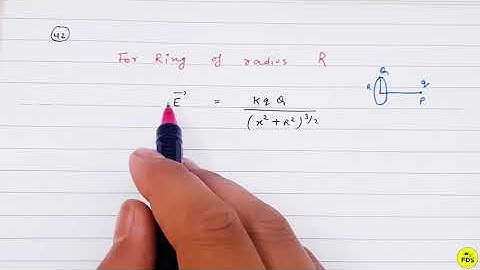 42
For Ring of radius R
E⃗ = KqQ / (x² + R²)^3/2
Q
R
q
P
FDS